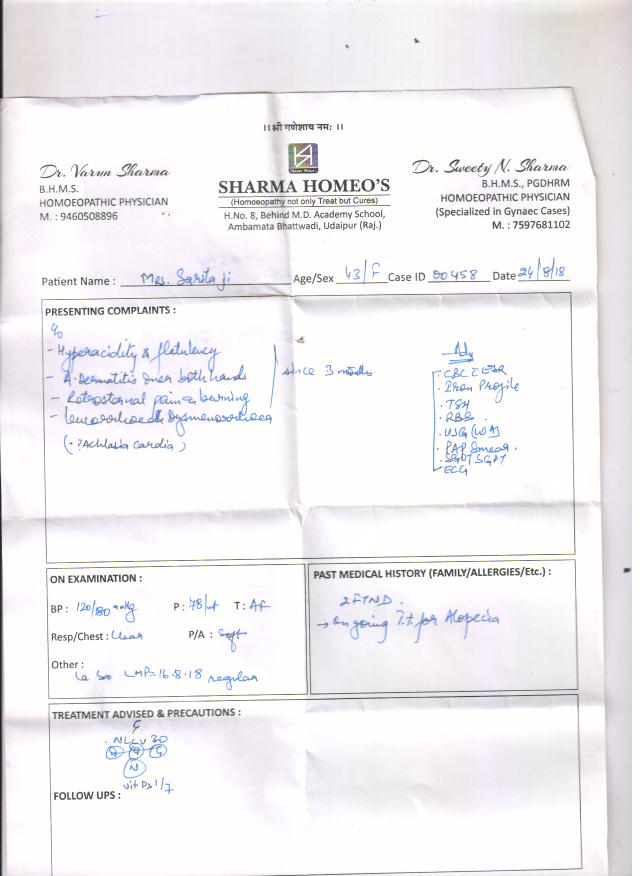 ।।श्री गणेशाय नमः ।।
Dr. Varun Sharma
B.H.M.S.
HOMOEOPATHIC PHYSICIAN
M. : 9460508896
SHARMA HOMEO'S
(Homoeopathy not only Treat but Cures)
H.No. 8, Behind M.D. Academy School,
Ambamata Bhattwadi, Udaipur (Raj.)
Dr. Sweety N. Sharma
B.H.M.S., PGDHRM
HOMOEOPATHIC PHYSICIAN
(Specialized in Gynaec Cases)
M. : 7597681102
Patient Name : Mrs. Sarita ji Age/Sex 43/F Case ID 00458 Date 24/8/18
PRESENTING COMPLAINTS :
c/o
- Hyperacidity & flatulency
- A. Dermatitis over both hands
- Retrosternal pain & burning
- Leucorrhoea & Dysmenorrhoea
since 3 months
(- ?Achlasia cardia)
Adv
- CBC c ESR
- Iron Profile
- TSH
- RBS
- USG (W/A)
- PAP Smear.
- SGOT SGPT
- ECG
ON EXAMINATION :
BP : 120/80 mmHg P : 78/mt T : Af
Resp/Chest : Clear P/A : Soft
Other :
LMP = 16.8.18 regular
PAST MEDICAL HISTORY (FAMILY/ALLERGIES/Etc.) :
2FTND.
→ ongoing T.t. for Alopecia
TREATMENT ADVISED & PRECAUTIONS :
N
vit D3 1/7
FOLLOW UPS :